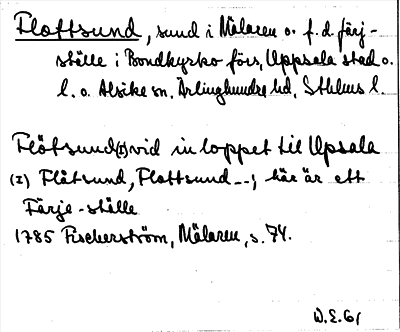 Flottsund, sund i Mälaren o. f.d. färj-
ställe i Bondkyrko förs, Uppsala stad o.
l. o. Alsike sn, Ärlinghundra hd, Sthlms l.
Flötsund(I) vid inloppet til Upsala
(I) Flåtsund, Flottsund --; här är ett
Färje-ställe
1785 Fischerström, Mälaren, s. 74.
W.E. 61